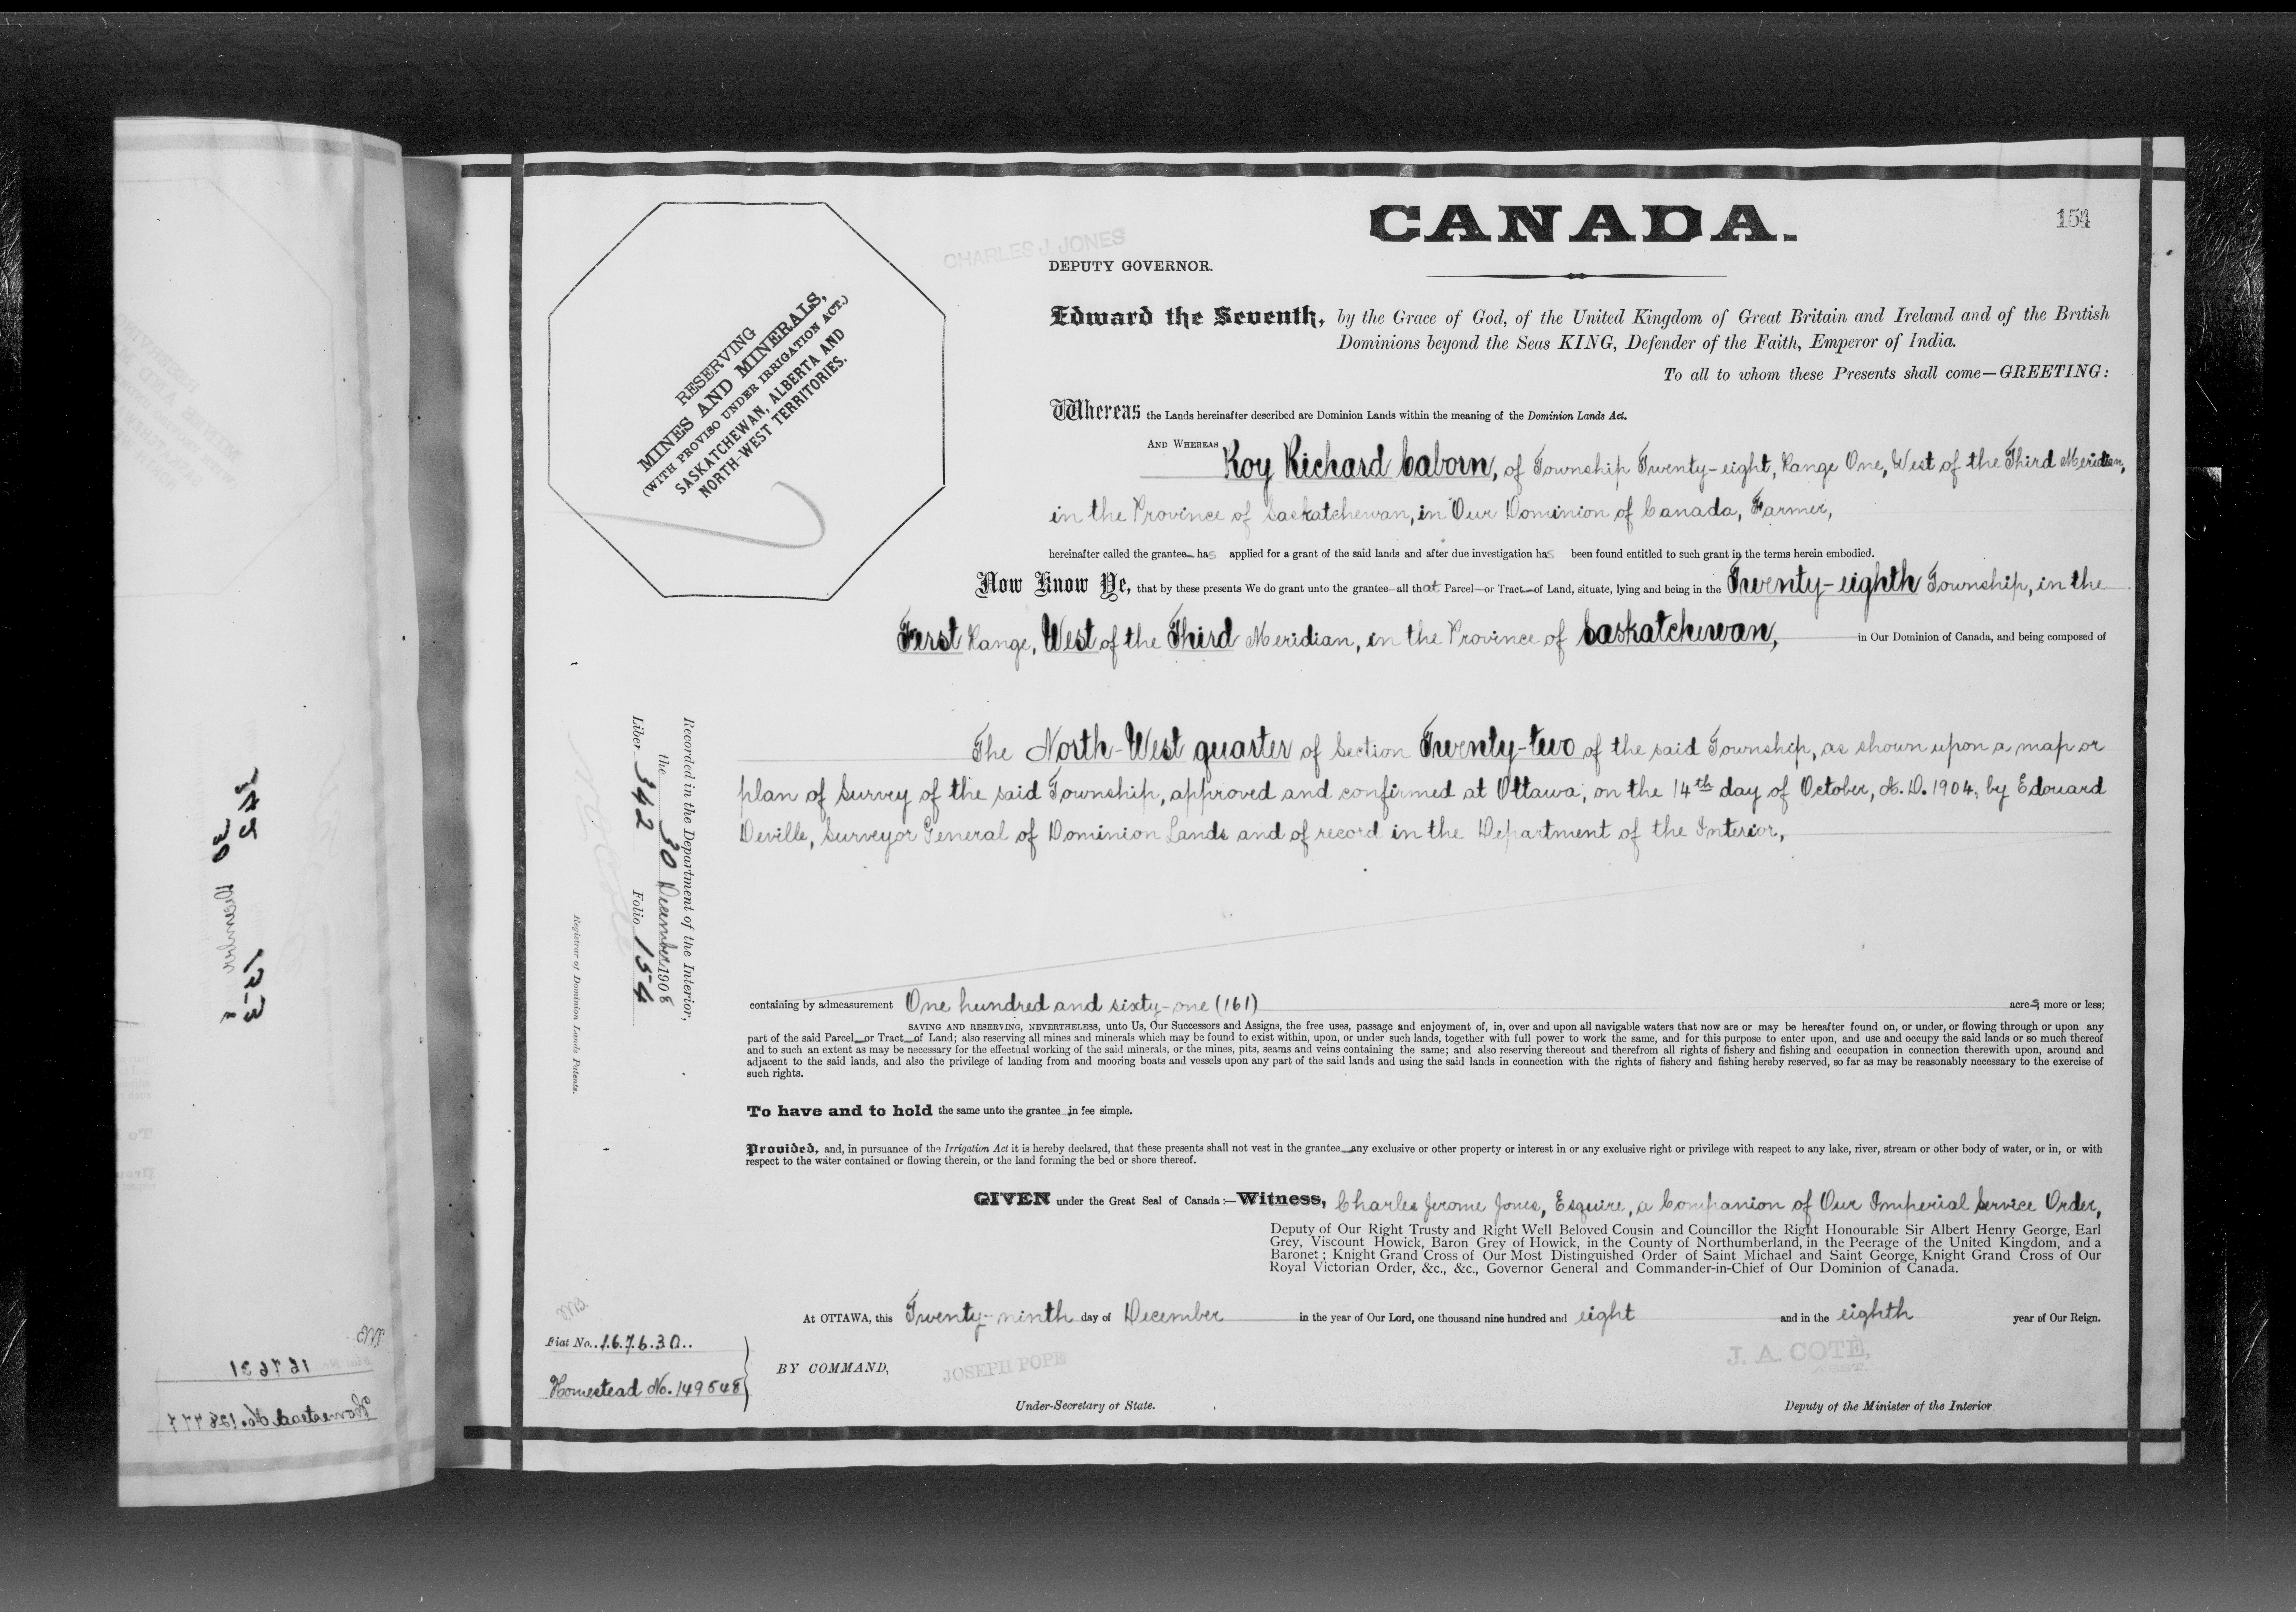 CANADA.
154
CHARLES J. JONES
DEPUTY GOVERNOR.
RESERVING
MINES AND MINERALS,
(WITH PROVISO UNDER IRRIGATION ACT.)
SASKATCHEWAN, ALBERTA AND
NORTH-WEST TERRITORIES.
Edward the Seventh, by the Grace of God, of the United Kingdom of Great Britain and Ireland and of the British
Dominions beyond the Seas KING, Defender of the Faith, Emperor of India.
To all to whom these Presents shall come—GREETING:
Whereas the Lands hereinafter described are Dominion Lands within the meaning of the Dominion Lands Act.
AND WHEREAS Roy Richard Caborn, of Township Twenty-eight, Range One, West of the Third Meridian,
in the Province of Saskatchewan, in Our Dominion of Canada, Farmer,
hereinafter called the grantee has applied for a grant of the said lands and after due investigation has been found entitled to such grant in the terms herein embodied.
Now Know Ye, that by these presents We do grant unto the grantee—all that Parcel—or Tract—of Land, situate, lying and being in the Twenty-eighth Township, in the
First Range, West of the Third Meridian, in the Province of Saskatchewan, in Our Dominion of Canada, and being composed of
The North-West quarter of Section Twenty-two of the said Township, as shown upon a map or
plan of Survey of the said Township, approved and confirmed at Ottawa, on the 14th day of October, A.D. 1904, by Edouard
Deville, Surveyor General of Dominion Lands and of record in the Department of the Interior,
Recorded in the Department of the Interior,
the 30 December 1908
Liber 342 Folio 154
Registrar of Dominion Lands Patents.
containing by admeasurement One hundred and sixty-one (161) acres, more or less;
SAVING AND RESERVING, NEVERTHELESS, unto Us, Our Successors and Assigns, the free uses, passage and enjoyment of, in, over and upon all navigable waters that now are or may be hereafter found on, or under, or flowing through or upon any
part of the said Parcel—or Tract—of Land; also reserving all mines and minerals which may be found to exist within, upon, or under such lands, together with full power to work the same, and for this purpose to enter upon, and use and occupy the said lands or so much thereof
and to such an extent as may be necessary for the effectual working of the said minerals, or the mines, pits, seams and veins containing the same; and also reserving thereout and therefrom all rights of fishery and fishing and occupation in connection therewith upon, around and
adjacent to the said lands, and also the privilege of landing from and mooring boats and vessels upon any part of the said lands and using the said lands in connection with the rights of fishery and fishing hereby reserved, so far as may be reasonably necessary to the exercise of
such rights.
To have and to hold the same unto the grantee in fee simple.
Provided, and, in pursuance of the Irrigation Act it is hereby declared, that these presents shall not vest in the grantee—any exclusive or other property or interest in or any exclusive right or privilege with respect to any lake, river, stream or other body of water, or in, or with
respect to the water contained or flowing therein, or the land forming the bed or shore thereof.
GIVEN under the Great Seal of Canada:—Witness, Charles Jerome Jones, Esquire, a Companion of Our Imperial Service Order,
Deputy of Our Right Trusty and Right Well Beloved Cousin and Councillor the Right Honourable Sir Albert Henry George, Earl
Grey, Viscount Howick, Baron Grey of Howick, in the County of Northumberland, in the Peerage of the United Kingdom, and a
Baronet; Knight Grand Cross of Our Most Distinguished Order of Saint Michael and Saint George, Knight Grand Cross of Our
Royal Victorian Order, &c., &c., Governor General and Commander-in-Chief of Our Dominion of Canada.
At OTTAWA, this Twenty-ninth day of December in the year of Our Lord, one thousand nine hundred and eight and in the eighth year of Our Reign.
Fiat No. 167630
Homestead No. 149548
BY COMMAND,
JOSEPH POPE
Under-Secretary of State.
J. A. COTÉ,
ASST.
Deputy of the Minister of the Interior
342
30 December
153
Fiat No. 167631
Homestead No. 128777